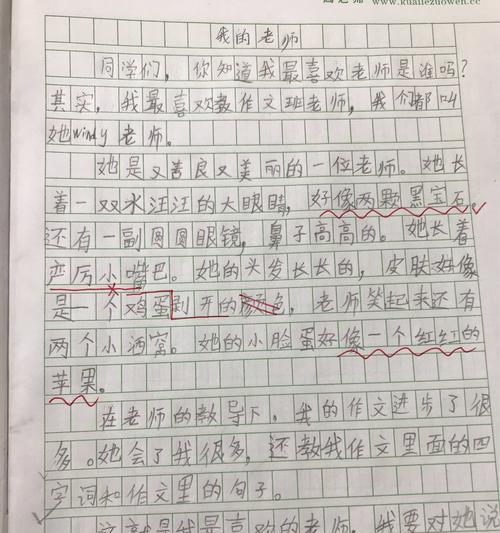 www.kuailezuowen.cc
我的老师
同学们，你知道我最喜欢老师是谁吗？
其实，我最喜欢教作文班老师，我们都叫
她windy老师。
她是又善良又美丽的一位老师。她长
着一双水汪汪的大眼睛，好像两颗黑宝石。
还有一副圆圆眼镜，鼻子高高的。她长着
厉小嘴巴。她的头发长长的，皮肤好像
是一个鸡蛋剥开的颜色，老师笑起来还有
两个小酒窝。她的小脸蛋好像一个红红的
苹果。
在老师的教导下，我的作文进步了很
多。她会了我很多，还教我作文里面的四
字词和作文里的句子。
这就是我是喜欢的老师，我要对她说